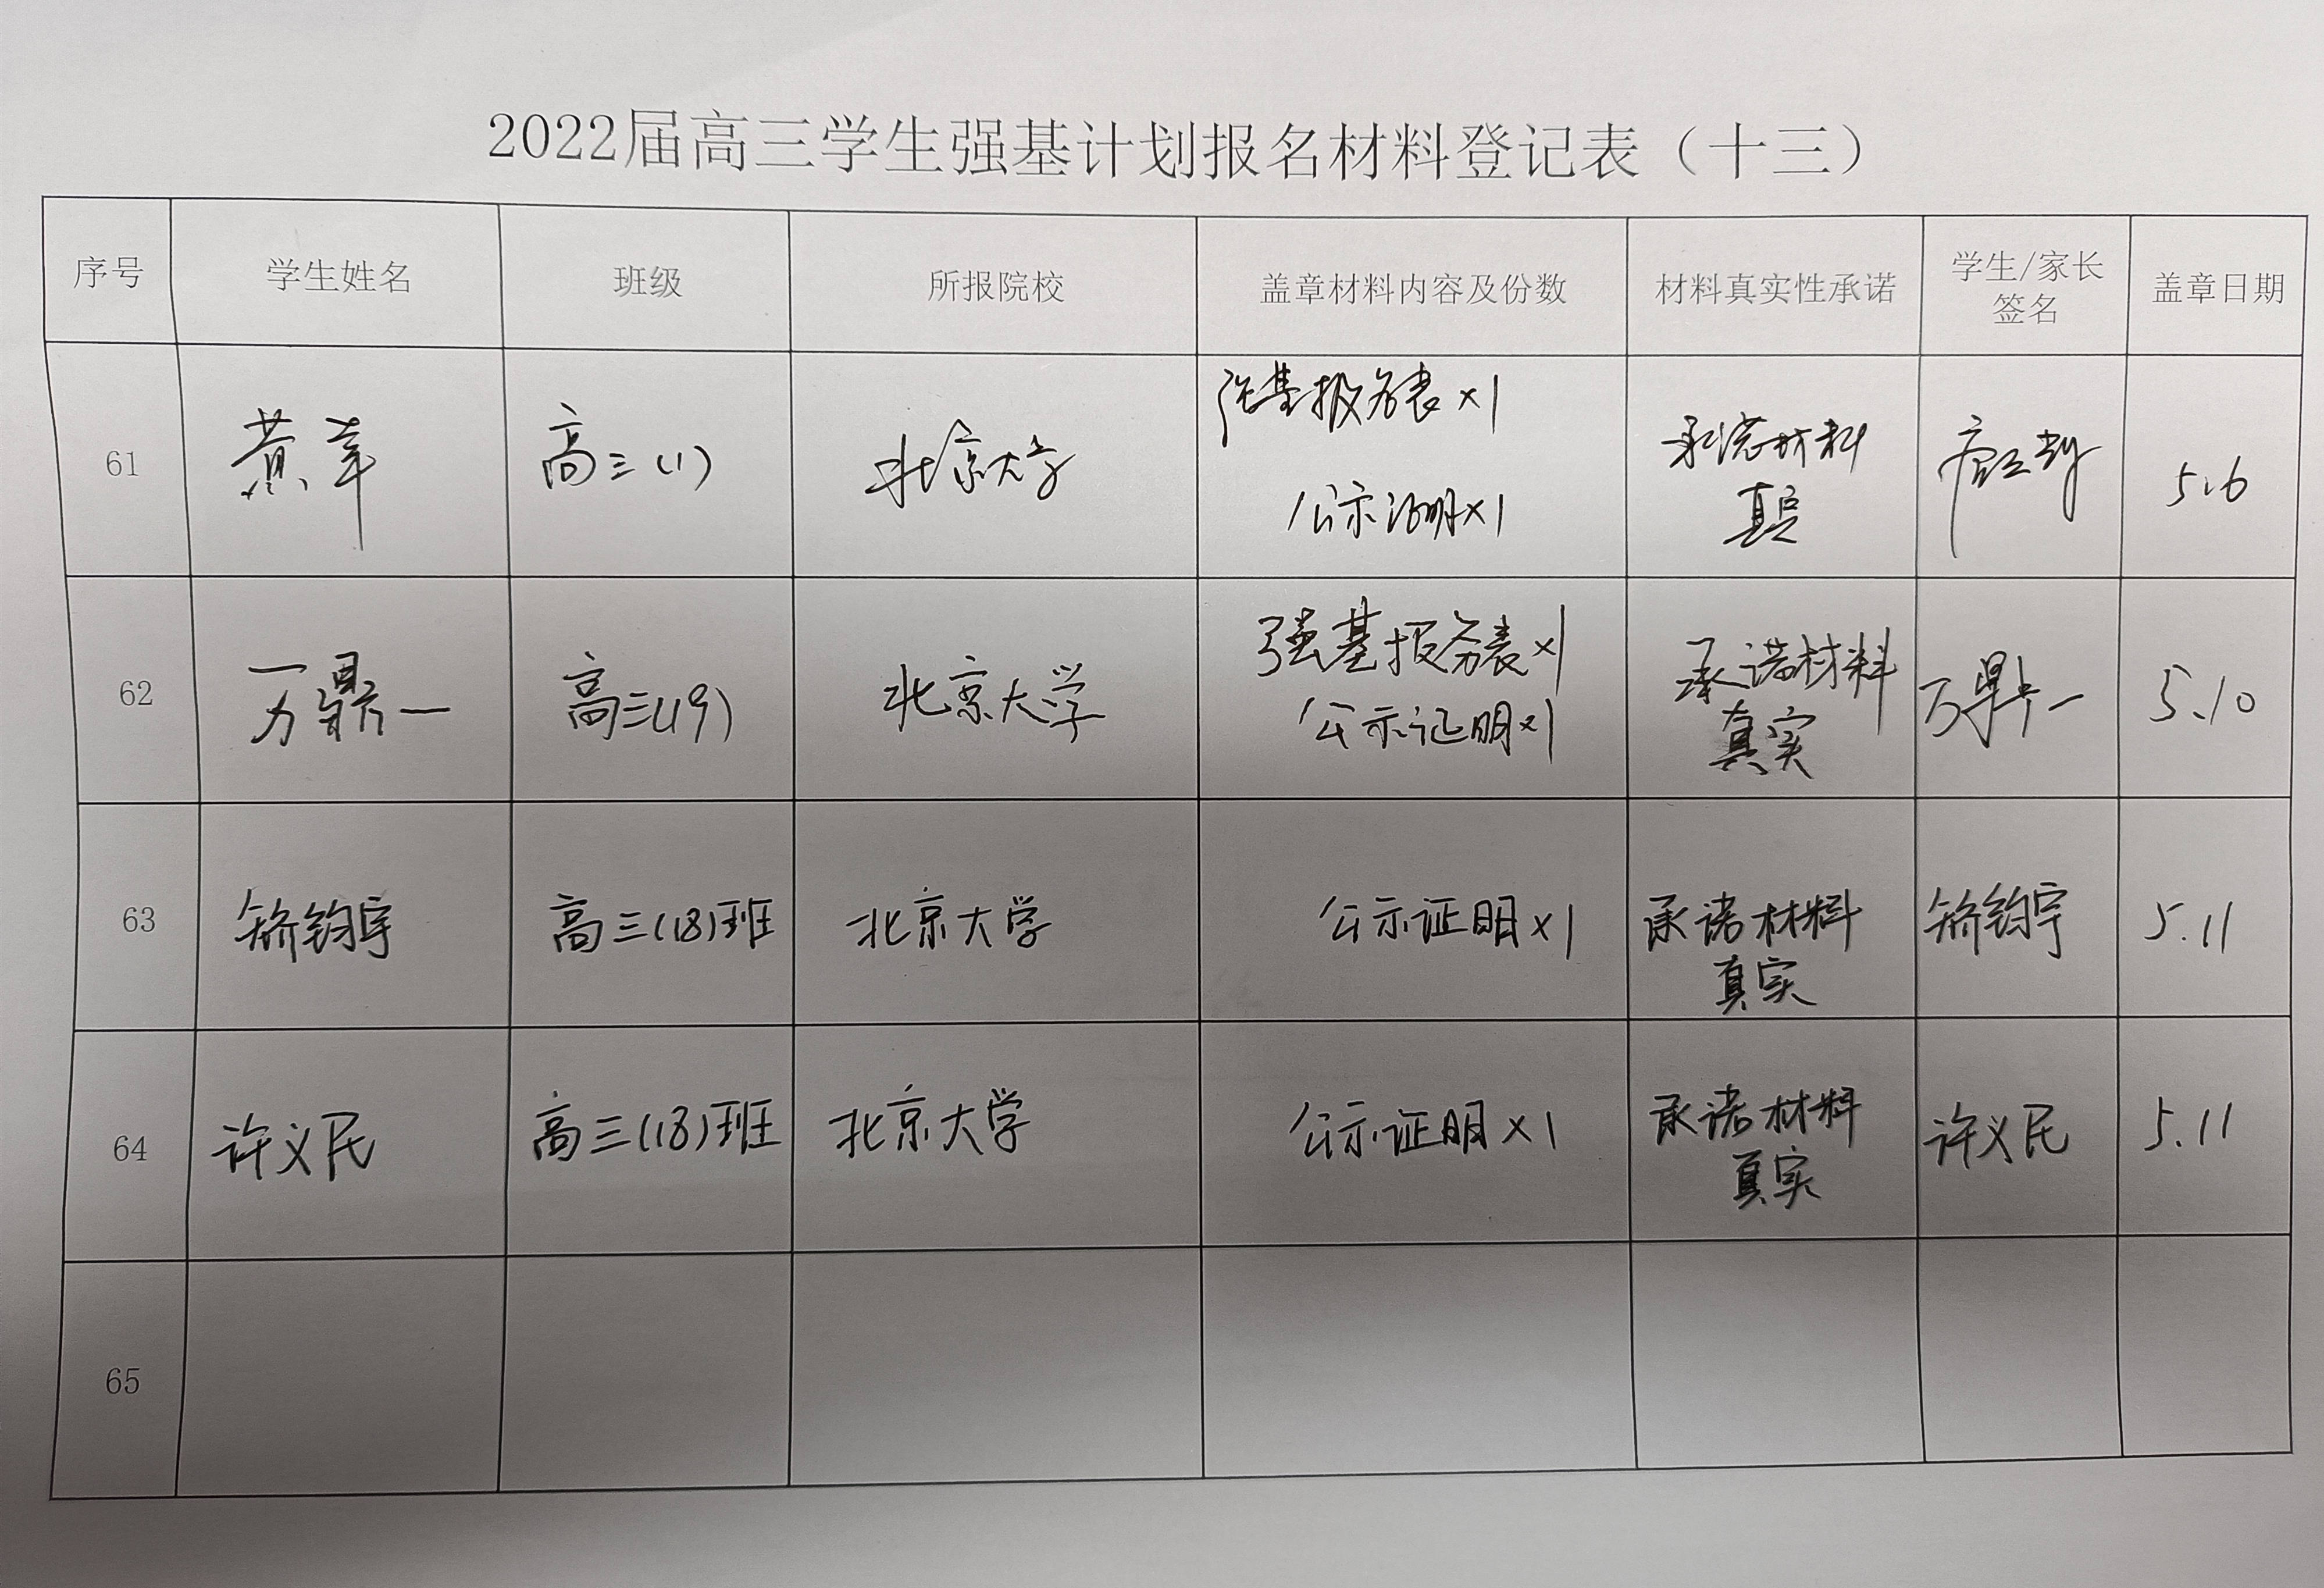 2022届高三学生强基计划报名材料登记表（十三）
序号 学生姓名 班级 所报院校 盖章材料内容及份数 材料真实性承诺 学生/家长 盖章日期
签名
61 黄 高三(1) 北京大学 强基报名表×1 承诺材料 5.6
公示证明×1 真实
62 万鼎一 高三(19) 北京大学 强基报名表×1 承诺材料 万鼎一 5.10
公示证明×1 真实
63 矫钧宇 高三(18)班 北京大学 公示证明×1 承诺材料 矫钧宇 5.11
真实
64 许义民 高三(18)班 北京大学 公示证明×1 承诺材料 许义民 5.11
真实
65